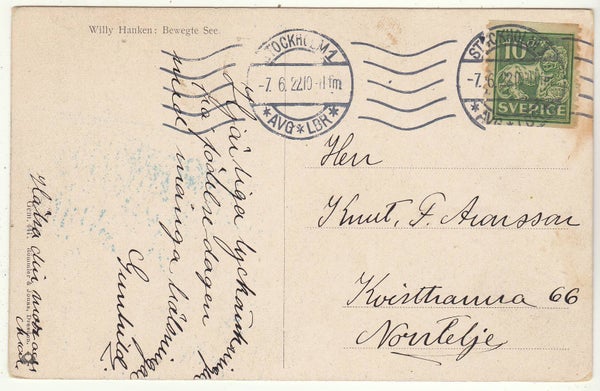 Willy Hanken: Bewegte See.
STOCKHOLM 1
-7. 6. 22 10-11 fm
*AVG*LBR*
STOCKHOLM
-7. 6. 22 10
*AVG*
10
SVERIGE
Hjärtliga lyckönskningar
födelsedagen
med många hälsningar
Gunhild.
Hälsa din
Serie 241. Stengel &
Dresden
Herr
Knut. F. Aronsson
Kvisthamra 66
Norrtelje